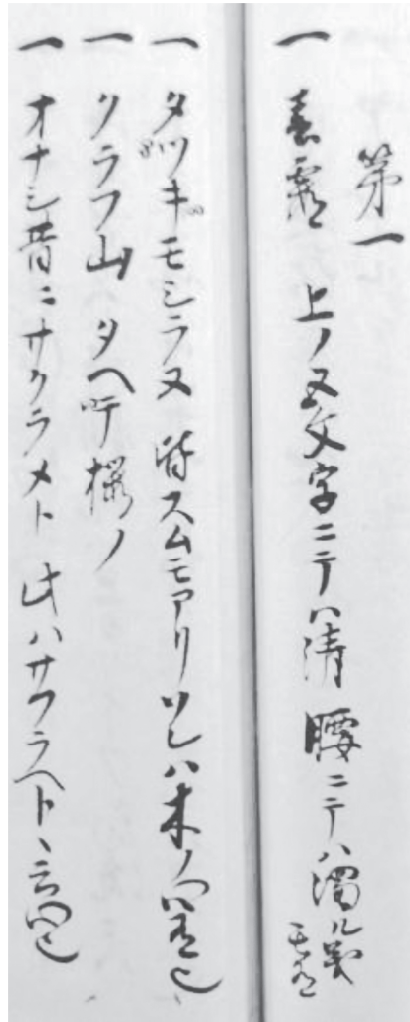 第一
一 春霞 上ノ五文字ニテハ清 腰ニテハ濁ル
一 タヅギモシラヌ 皆スムモアリ ソレハ木ノ
一 クラフ山 タヘ 桜ノ
一 オナシ昔ニサクラメト 此ハサクラヘト、云